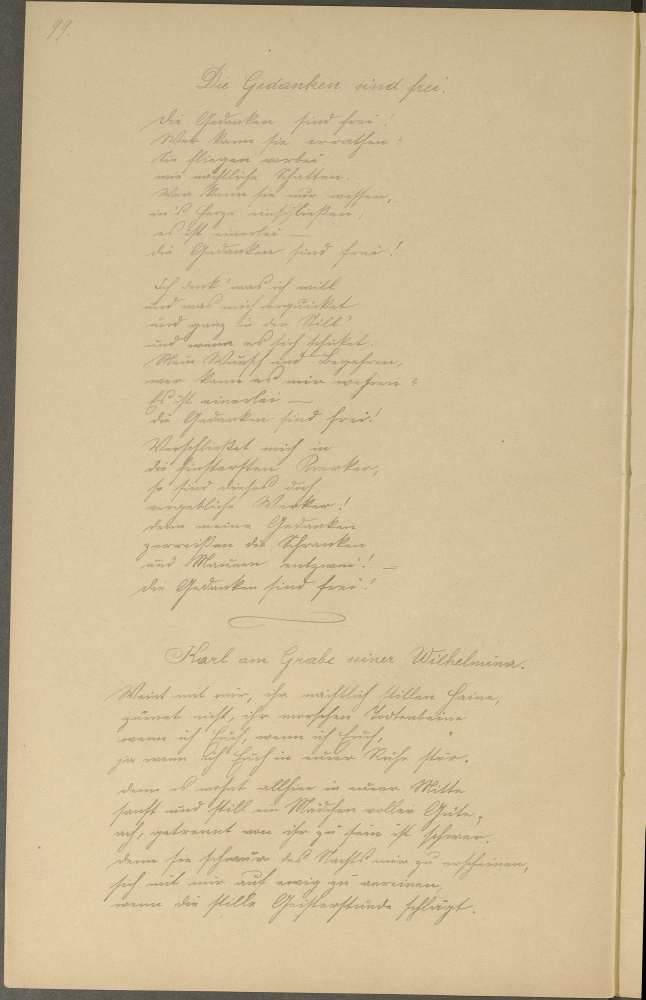 99.
Die Gedanken sind frei.
Die Gedanken sind frei!
Wer kann sie errathen?
Sie fliegen vorbei
wie nächtliche Schatten.
Wer kann sie nur wissen,
in's Herze einschließen,
es ist einerlei —
die Gedanken sind frei!
Ich denk' was ich will
und was mich erquicket
und ganz in der Still'
und wenn es sich schicket.
Mein Wunsch und Begehren,
wer kann es mir wehren?
Es ist einerlei —
die Gedanken sind frei!
Verschließet mich in
die finstersten Kerker,
so sind dieses doch
vergebliche Werker!
denn meine Gedanken
zerreißen die Schranken
und Mauern entzwei! —
die Gedanken sind frei!
Karl am Grabe seiner Wilhelmina.
Weint mit mir, ihr nächtlich stillen Haine,
zürnet nicht, ihr morschen Todtenbeine
wenn ich Euch, wenn ich Euch,
ja wenn ich Euch in eurer Ruhe stör.
denn es wohnt allhier in eurer Mitte
sanft und still ein Mädchen voller Güte,
ach, getrennt von ihr zu sein ist schwer.
denn sie schwur des Nachts mir zu erscheinen,
sich mit mir auf ewig zu vereinen,
wenn die stille Geisterstunde schlägt.